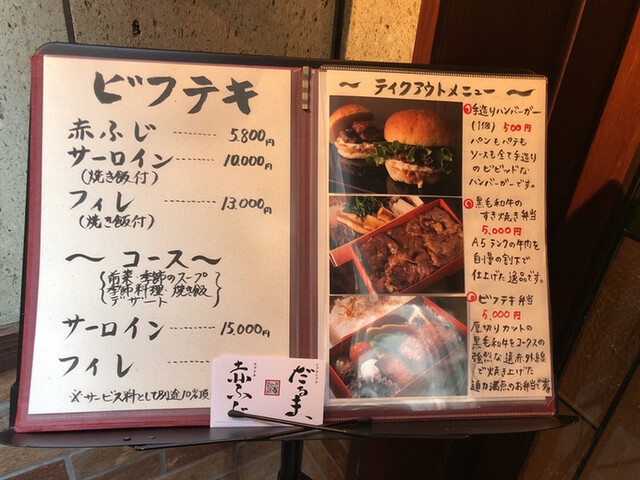 ビフテキ
赤ふじ ------- 5.800円
サーロイン ------- 10.000円
(焼き飯付)
フィレ ------- 13.000円
(焼き飯付)
〜コース〜
前菜・季節のスープ
季節料理・焼き飯
デザート
サーロイン ------- 15,000円
フィレ
※サービス料として別途10%頂
だるま、
赤ふじ
〜テイクアウトメニュー〜
手造りハンバーガー
(1個) 500円
パンもパテも
ソースも全て手造り
のビビッドな
ハンバーガーです。
黒毛和牛の
すき焼き弁当
5,000円
A5ランクの牛肉を
自慢の割下で
仕上げた逸品です。
ビフテキ弁当
5,000円
厚切りカットの
黒毛和牛をコークスの
強烈な遠赤外線
で焼き上げた
迫力満点のお弁当